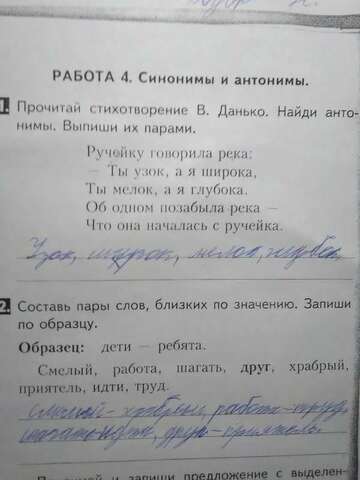 РАБОТА 4. Синонимы и антонимы.
1. Прочитай стихотворение В. Данько. Найди анто-
нимы. Выпиши их парами.
Ручейку говорила река:
— Ты узок, а я широка,
Ты мелок, а я глубока.
Об одном позабыла река —
Что она началась с ручейка.
Узок, широк, мелок, глубок
2. Составь пары слов, близких по значению. Запиши
по образцу.
Образец: дети — ребята.
Смелый, работа, шагать, друг, храбрый,
приятель, идти, труд.
Смелый - храбрый, работа - труд,
шагать - идти, друг - приятель.
и запиши предложение с выделен-